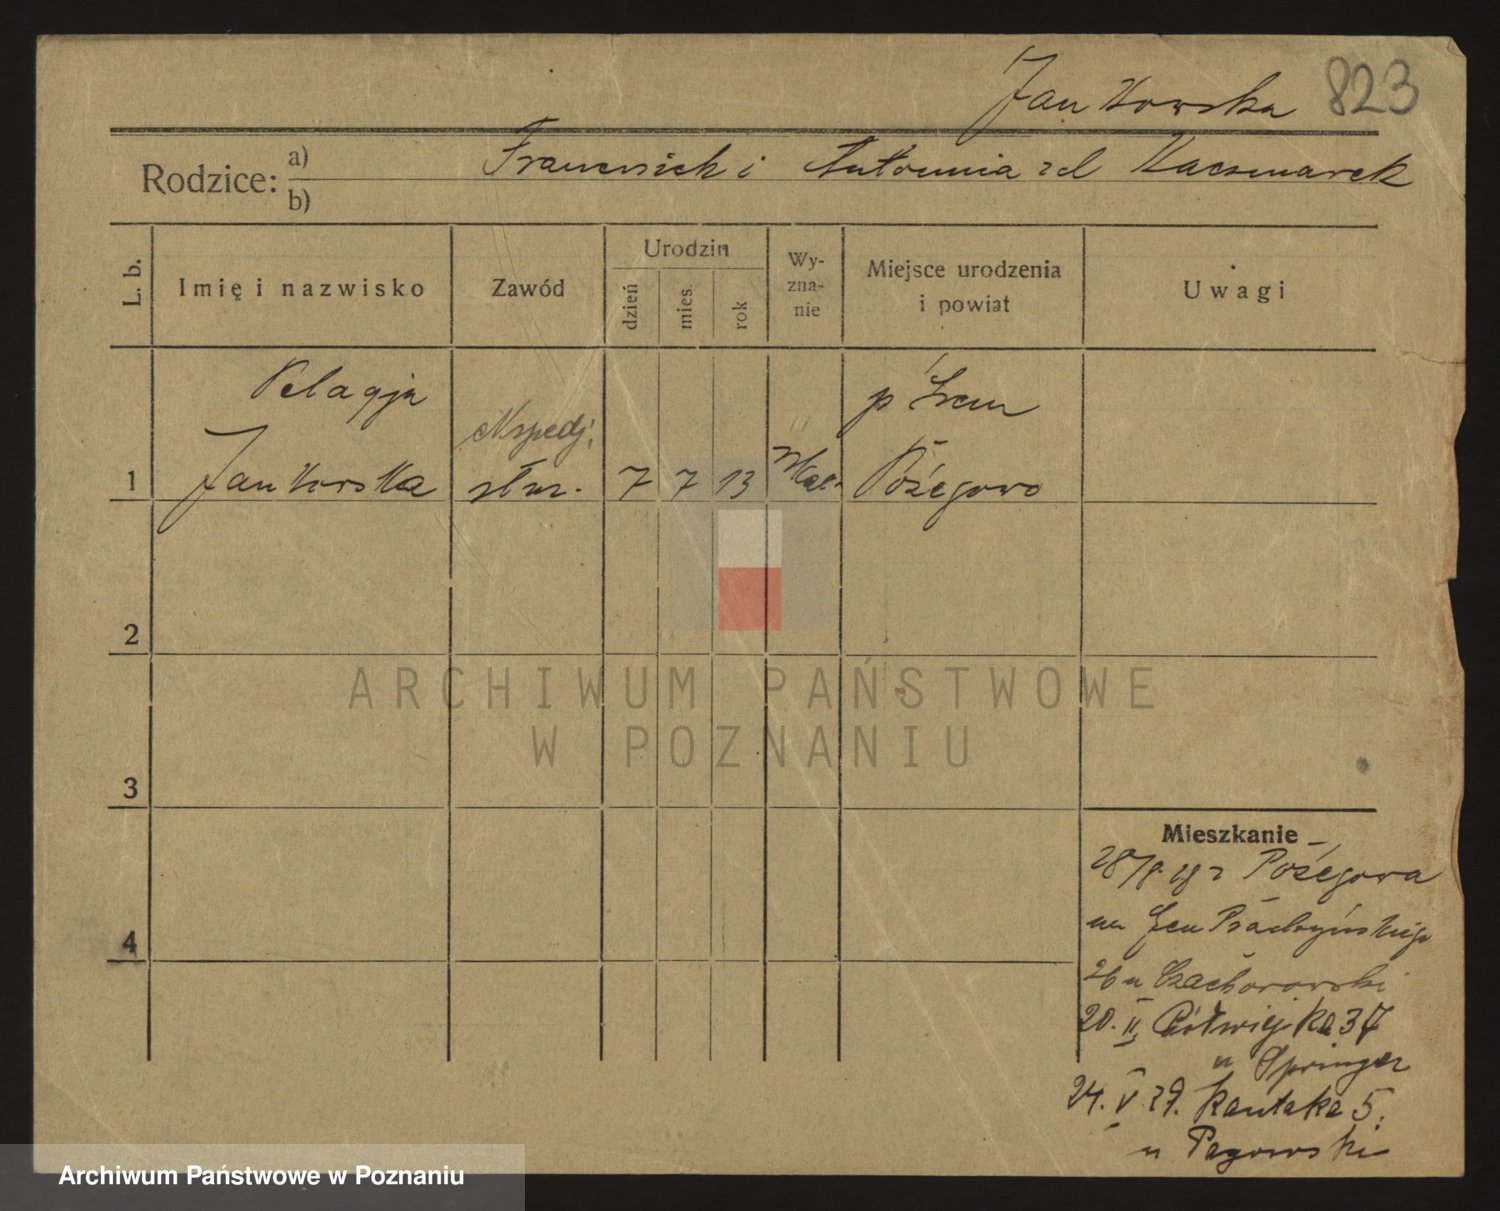 Jankowska 823
Rodzice: a) Franciszek i Antonina zd Kaczmarek
b)
L. b.
Imię i nazwisko
Zawód
Urodzin
dzień
mies.
rok
Wy-
zna-
nie
Miejsce urodzenia
i powiat
Uwagi
Pelagja
ekspedj.
p Śrem
1 Jankowska służ. 7 7 13 kat. Pożegowo
2
3
4
ARCHIWUM PAŃSTWOWE
W POZNANIU
Mieszkanie
28/8 28 z Pożegowa
na Gen Prądzyńskiego
26 u Czachorowski
20. II Półwiejska 37
u Springer
24. V 29. Kantaka 5.
u Pagowski
Archiwum Państwowe w Poznaniu